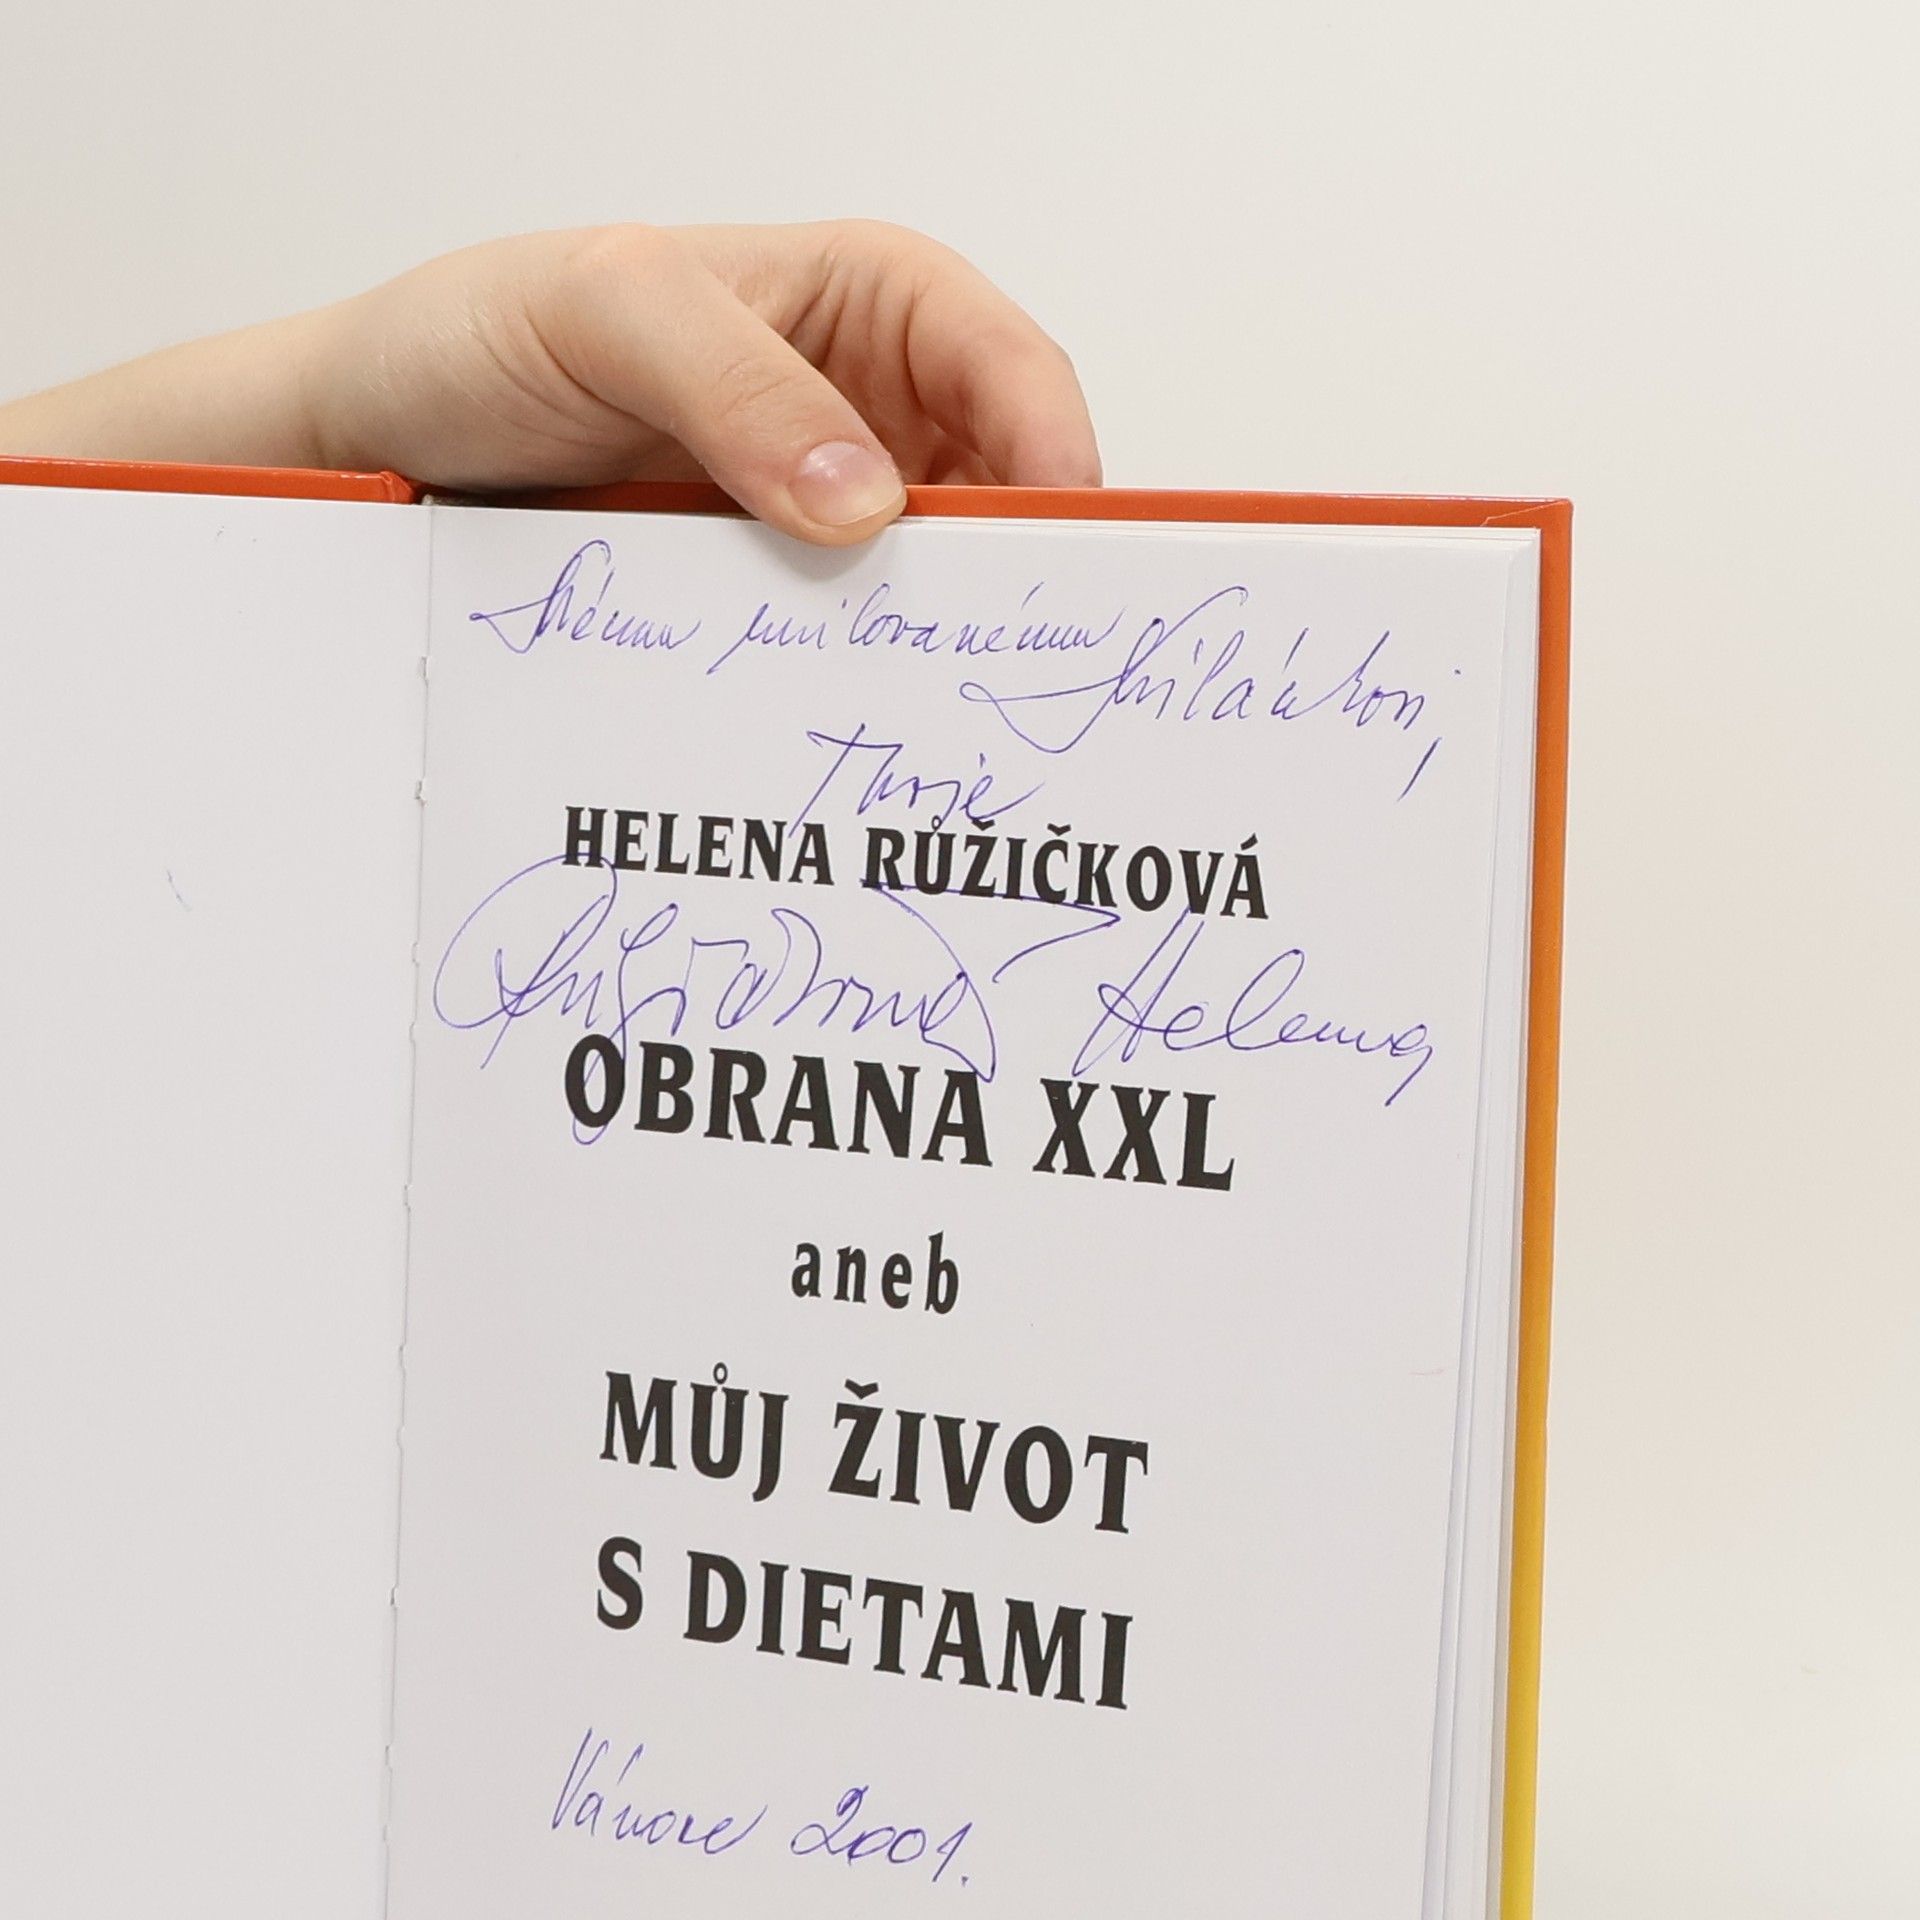 Svému milovanému
Miláčkovi,
Tvoje
HELENA RŮŽIČKOVÁ
Růžičková Helena
OBRANA XXL
aneb
MŮJ ŽIVOT
S DIETAMI
Vánoce 2001.